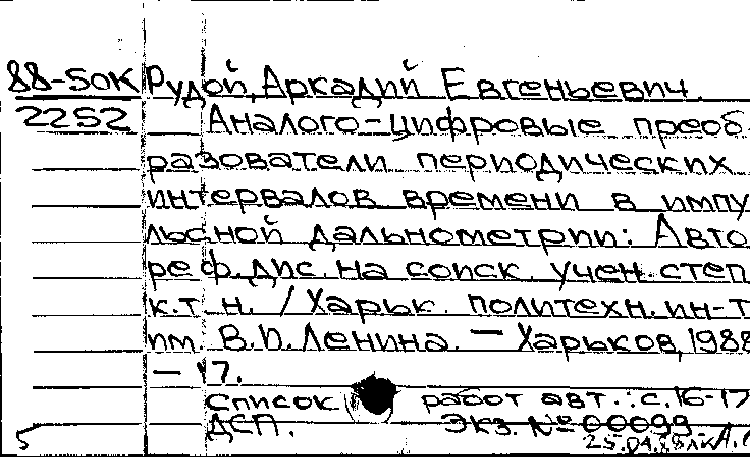 88-50К Рудой, Аркадий Евгеньевич.
2252 Аналого-цифровые преоб
разователи периодических
интервалов времени в импу
льсной дальнометрии: Авто
реф. дис. на соиск. учен. степ
к.т.н. / Харьк. политехн. ин-т
им. В.И. Ленина. — Харьков, 1988
— 17.
Список работ авт.: с. 16-17
ДСП. Экз. № 00099
5